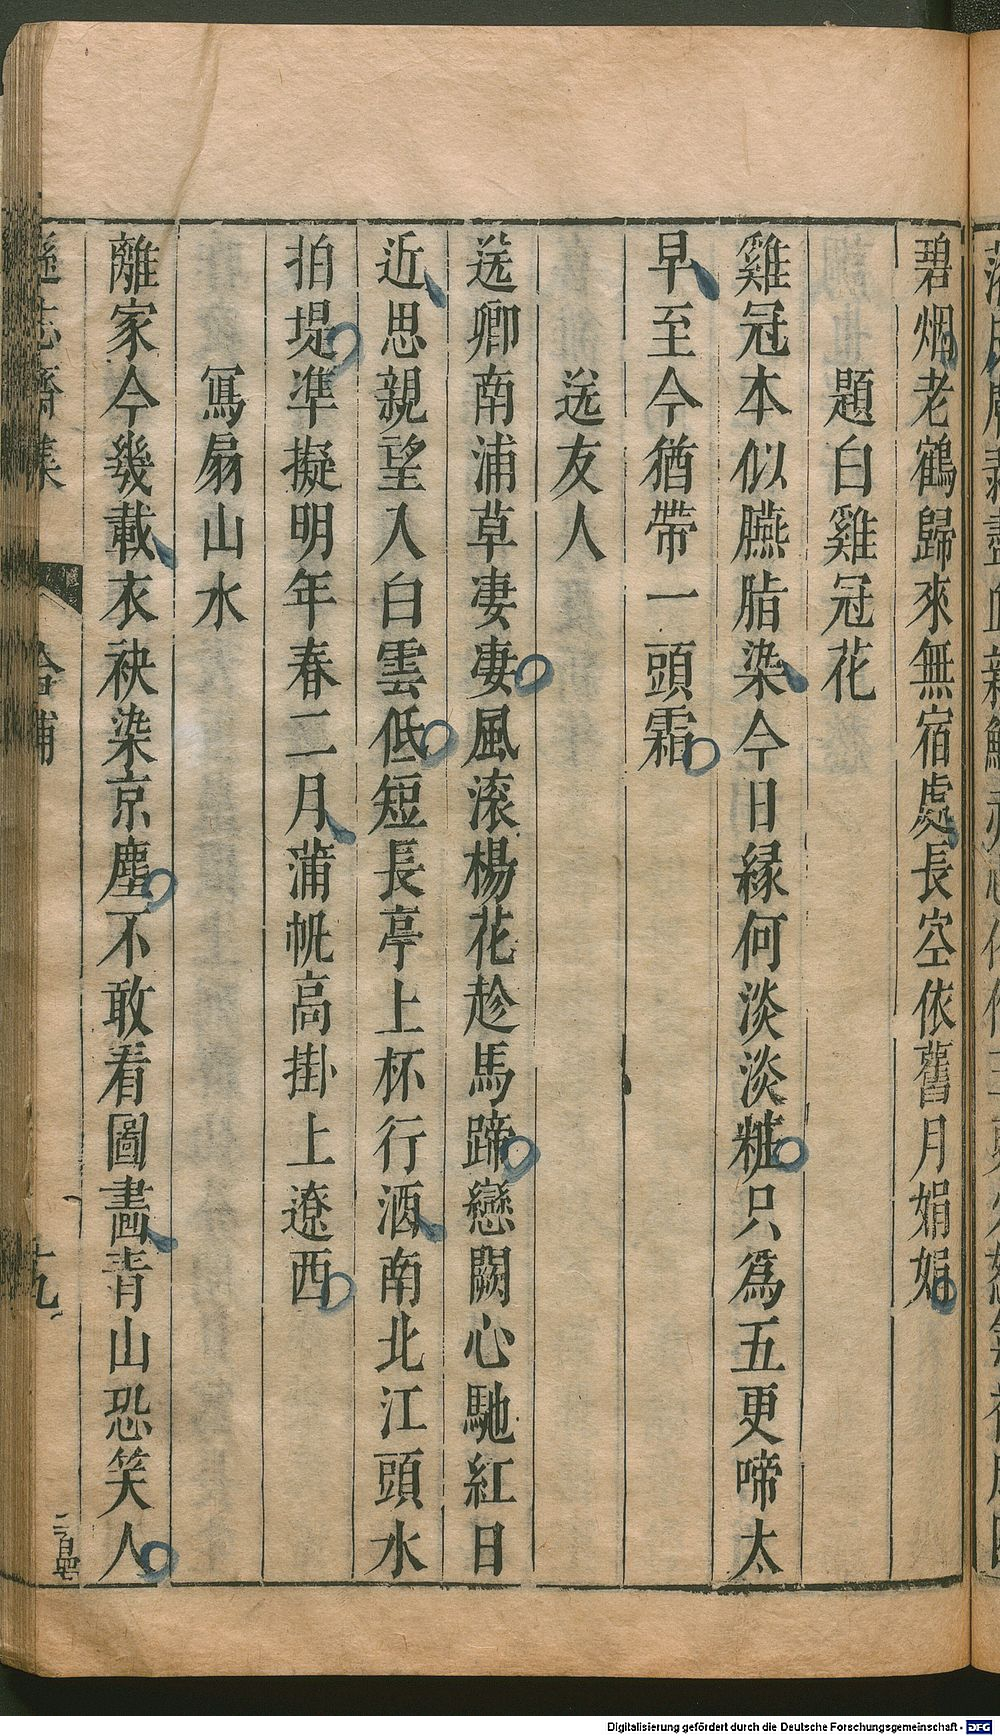 碧烟老鶴歸來無宿處長空依舊月娟娟
題白雞冠花
雞冠本似臙脂染今日縁何淡淡粧只爲五更啼太
早至今猶帶一頭霜
送友人
送卿南浦草凄凄風滚楊花趁馬蹄戀闕心馳紅日
近思親望入白雲低短長亭上杯行酒南北江頭水
拍堤凖擬明年春二月蒲帆高掛上遼西
冩扇山水
離家今幾載衣袂染京塵不敢看圖畵青山恐笑人
遜志齋集
拾補
十九
Digitalisierung gefördert durch die Deutsche Forschungsgemeinschaft - DFG